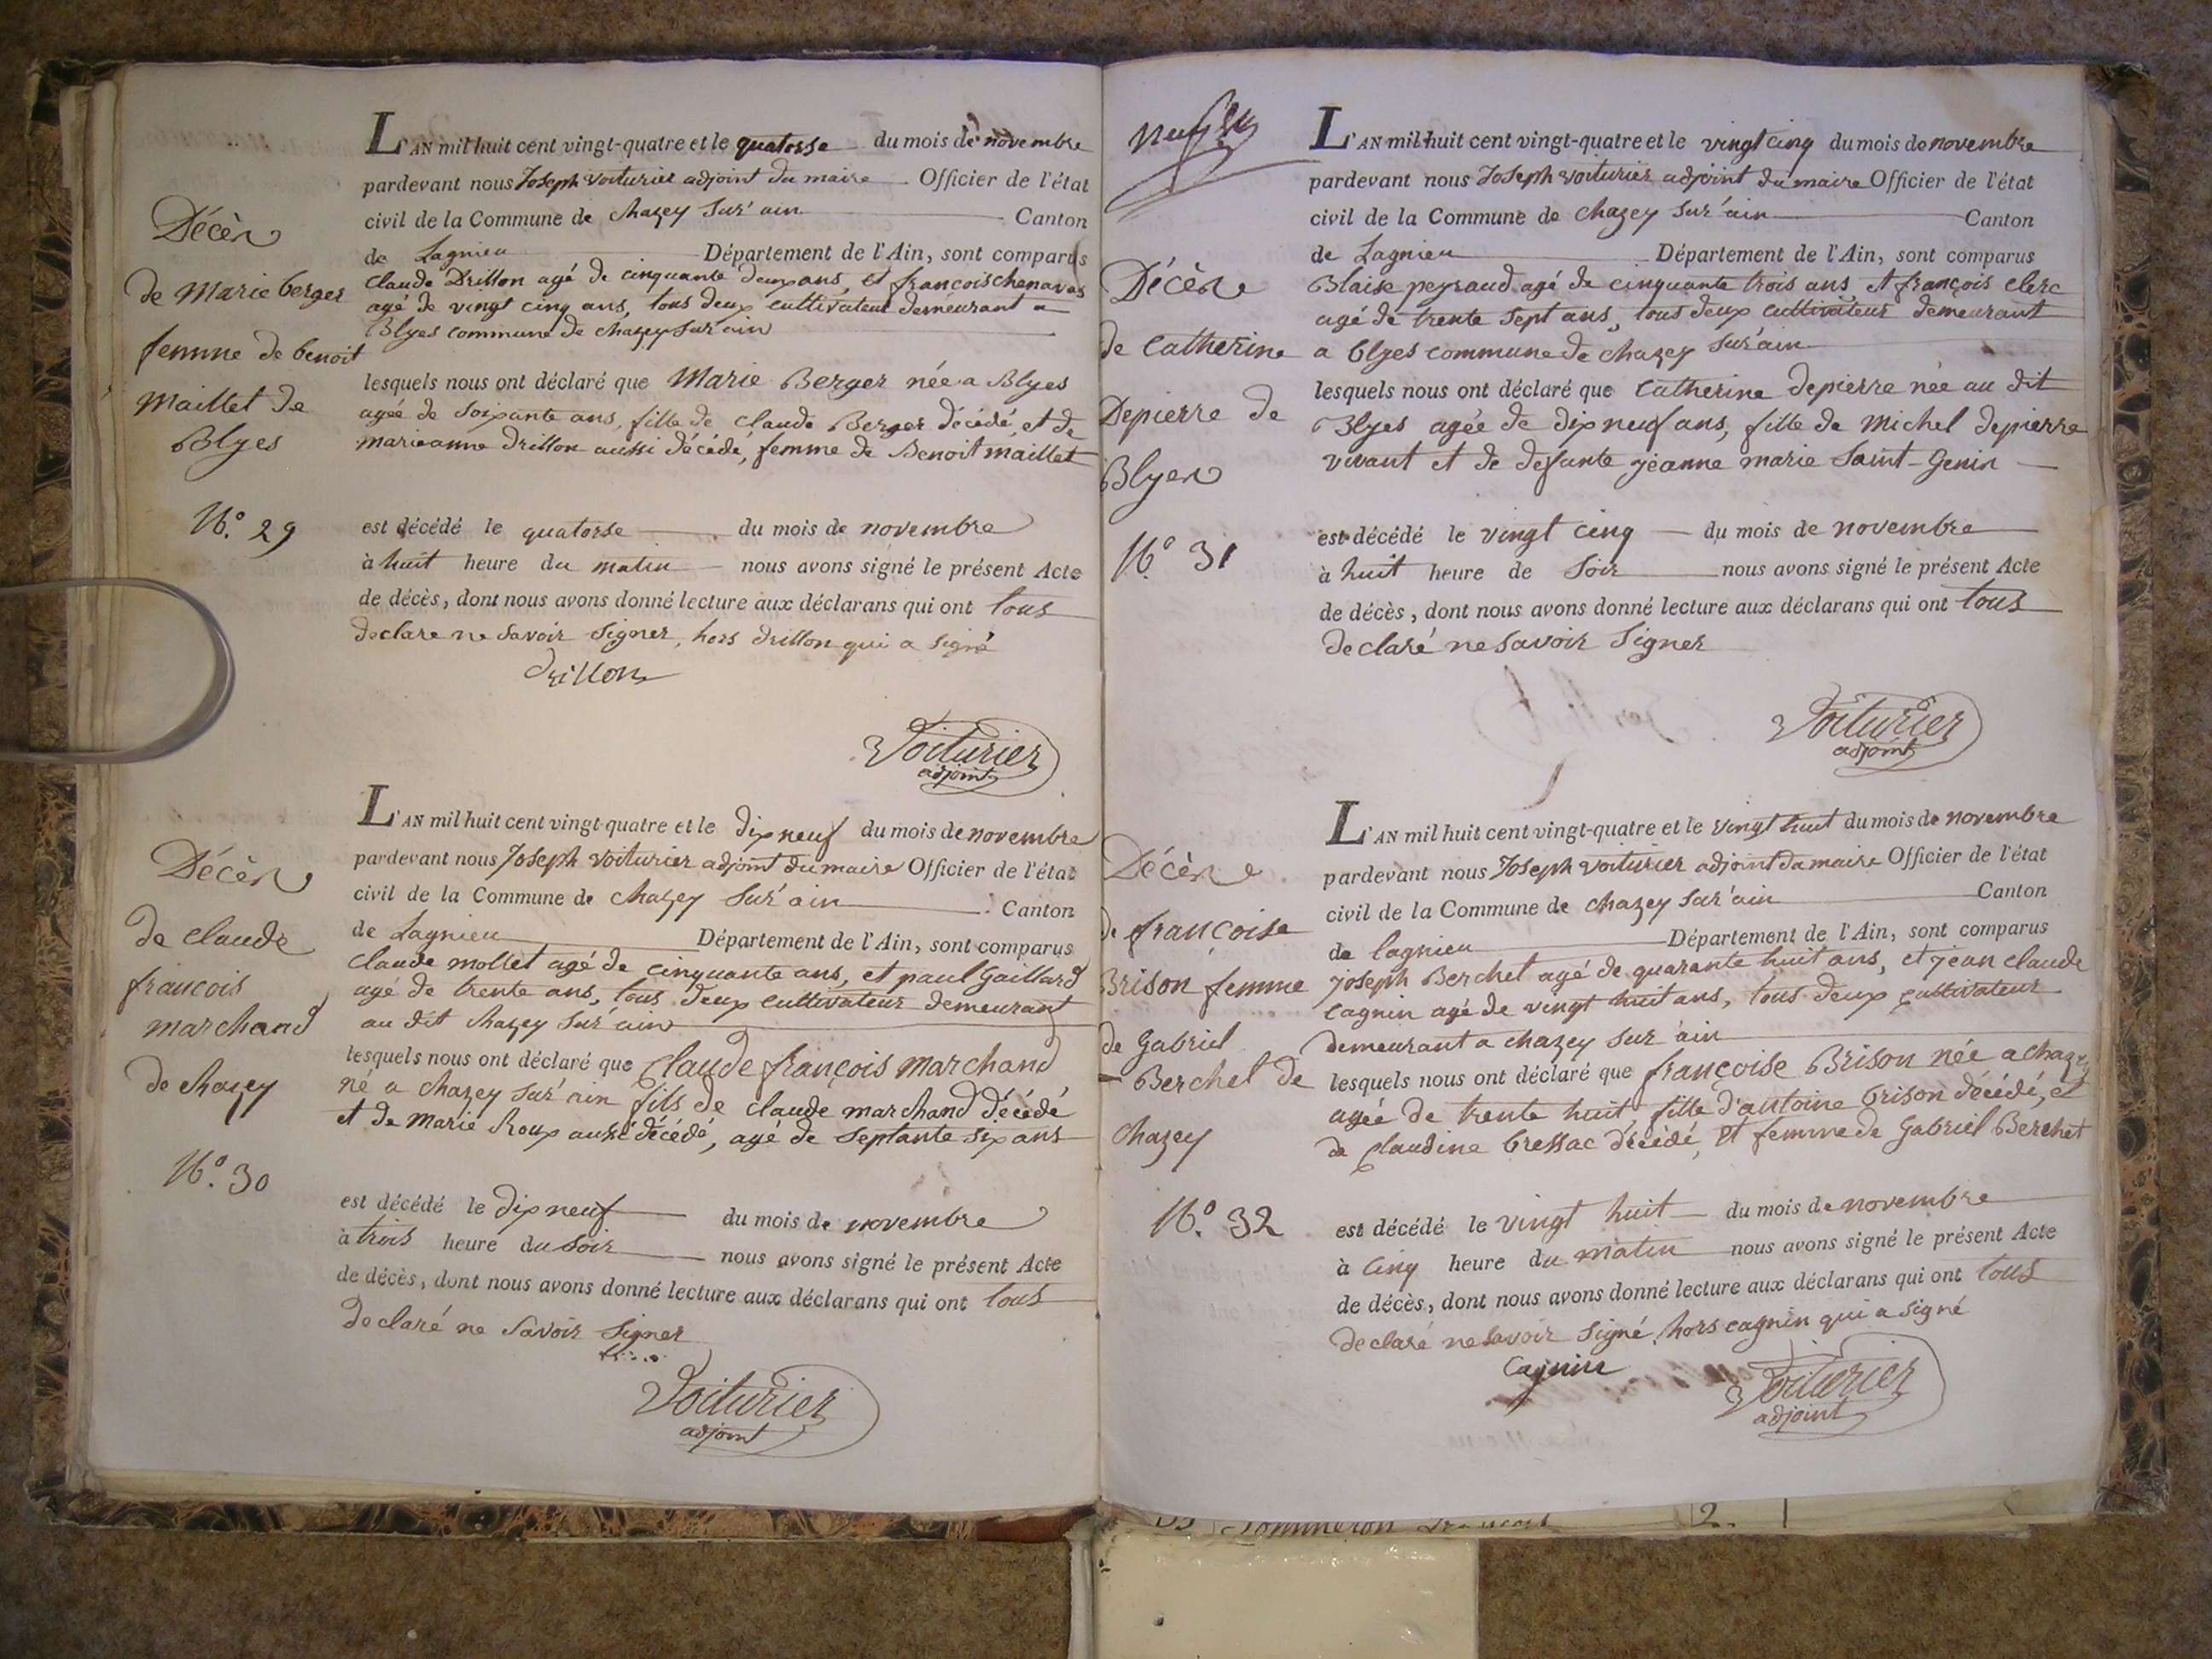 Décès
de Marie berger
femme de benoit
Maillet de
Blyes
N.° 29
L'AN mil huit cent vingt-quatre et le quatorse du mois de novembre
pardevant nous Joseph Voiturier adjoint du maire Officier de l'état
civil de la Commune de chazey sur'ain Canton
de Lagnieu Département de l'Ain, sont comparus
Claude Drillon agé de cinquante deux ans, et francois chenavas
agé de vingt cinq ans, tous deux cultivateur demeurant a
Blyes commune de chazey sur ain
lesquels nous ont déclaré que Marie Berger née a Blyes
agée de soixante ans, fille de claude Berger décédé et de
marieanne drillon aussi décédé, femme de Benoit maillet
est décédé le quatorse du mois de novembre
à huit heure du matin nous avons signé le présent Acte
de décès, dont nous avons donné lecture aux déclarans qui ont tous
declare ne savoir signer, hors drillon qui a signé
drillon
Voiturier
adjoint
Décès
de claude
francois
marchand
de chazey
N.° 30
L'AN mil huit cent vingt-quatre et le dix neuf du mois de novembre
pardevant nous Joseph Voiturier adjoint du maire Officier de l'état
civil de la Commune de chazey sur'ain Canton
de Lagnieu Département de l'Ain, sont comparus
Claude mollet agé de cinquante ans, et paul Gaillard
agé de trente ans, tous deux cultivateur demeurant
au dit chazey sur'ain
lesquels nous ont déclaré que Claude françois marchand
né a chazey sur'ain fils de claude marchand décédé
et de Marie Roux aussi décédé, agé de septante six ans
est décédé le dix neuf du mois de novembre
à trois heure du soir nous avons signé le présent Acte
de décès, dont nous avons donné lecture aux déclarans qui ont tous
declaré ne savoir signer
Voiturier
adjoint
neuf
Décès
de Catherine
Depierre de
Blyes
N.° 31
L'AN mil huit cent vingt-quatre et le vingt cinq du mois de novembre
pardevant nous Joseph voiturier adjoint du maire Officier de l'état
civil de la Commune de chazey sur'ain Canton
de Lagnieu Département de l'Ain, sont comparus
Blaise peyraud agé de cinquante trois ans et françois clerc
agé de trente sept ans, tous deux cultivateur demeurant
a blyes commune de chazey sur'ain
lesquels nous ont déclaré que Catherine depierre née au dit
Blyes agée de dix neuf ans, fille de michel depierre
vivant et de defunte jeanne marie Saint-Genin
est décédé le vingt cinq du mois de novembre
à huit heure de soir nous avons signé le présent Acte
de décès, dont nous avons donné lecture aux déclarans qui ont tous
declaré ne savoir signer
Voiturier
adjoint
Décès
de françoise
Brison femme
de Gabriel
Berchet de
chazey
N.° 32
L'AN mil huit cent vingt-quatre et le vingt huit du mois de novembre
pardevant nous Joseph voiturier adjoint du maire Officier de l'état
civil de la Commune de chazey sur'ain Canton
de lagnieu Département de l'Ain, sont comparus
joseph Berchet agé de quarante huit ans, et jean claude
Cagnin agé de vingt huit ans, tous deux cultivateur
demeurant a chazey sur ain
lesquels nous ont déclaré que françoise Brison née a chazey
agée de trente huit fille d'antoine brison décédé, et
de Claudine bressac décédé, et femme de Gabriel Berchet
est décédé le vingt huit du mois de novembre
à cinq heure du matin nous avons signé le présent Acte
de décès, dont nous avons donné lecture aux déclarans qui ont tous
declaré ne savoir signé hors cagnin qui a signé
Cagnin
Voiturier
adjoint
2.